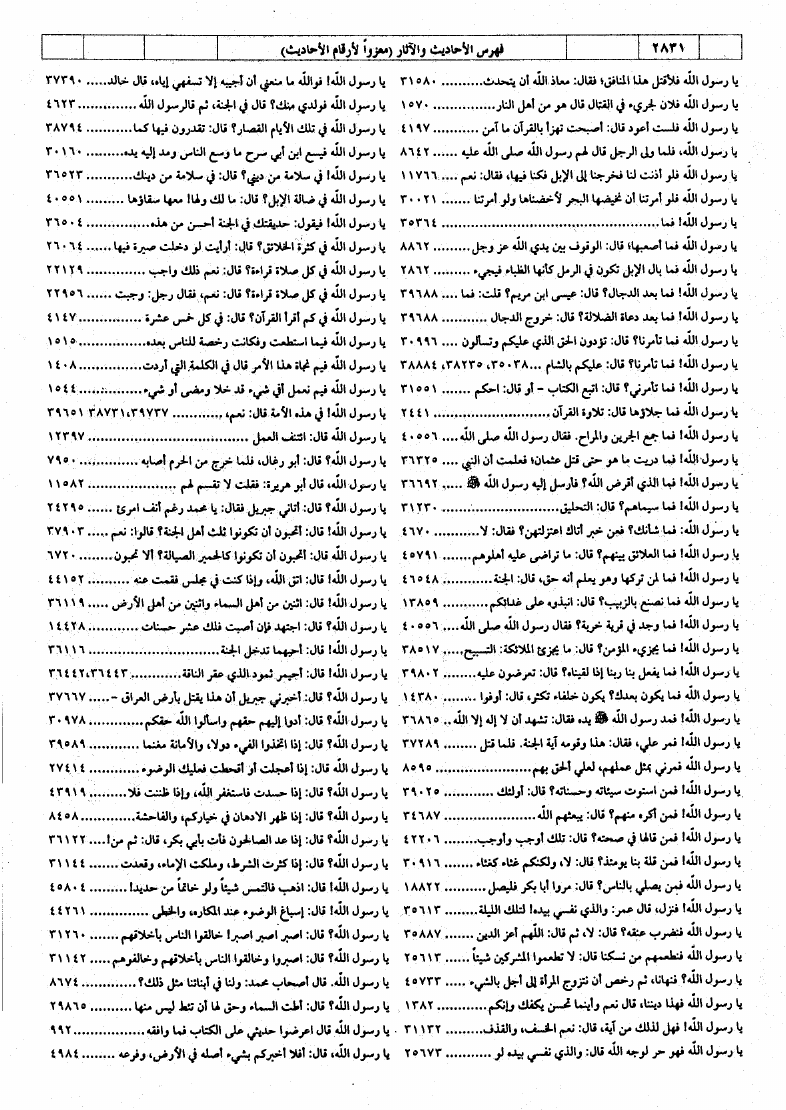 ٢٨٣١
فهرس الأحاديث والآثار (معزواً لأرقام الأحاديث)
يا رسول الله فلأقتل هذا المنافق؟ فقال: معاذ الله أن يتحدث.......... ٣١٥٨٠
يا رسول الله فلان لجريء في القتال قال هو من أهل النار.............. ١٥٧٠
يا رسول الله فلست أعود قال: أصبحت تهزأ بالقرآن ما آمن .......... ٤١٩٧
يا رسول الله، فلما ولى الرجل قال لهم رسول الله صلى الله عليه ...... ٨٦٤٢
يا رسول الله فلو أذنت لنا فخرجنا إلى الإبل فكنا فيها، فقال: نعم .... ١١٧٦٦
يا رسول الله فلو أمرتنا أن نخيضها البحر لأخضناها ولو أمرتنا ...... ٣٠٠٢١
يا رسول الله! فما .................................................. ٣٥٣٦٤
يا رسول الله فما أصعبها؛ قال: الوقوف بين يدي الله عز وجل ........ ٨٨٦٢
يا رسول الله فما بال الإبل تكون في الرمل كأنها الظباء فيجيء ........ ٢٨٦٢
يا رسول الله! فما بعد الدجال؟ قال: عيسى ابن مريم؟ قلت: فما .... ٣٩٦٨٨
يا رسول الله! فما بعد دعاة الضلالة؟ قال: خروج الدجال .......... ٣٩٦٨٨
يا رسول الله! فما تأمرنا؟ قال: تؤدون الحق الذي عليكم وتسألون .... ٣٠٩٩٦
يا رسول الله! فما تأمرنا؟ قال: عليكم بالشام ...٣٥٠٣٨، ٣٨٢٣٥، ٣٨٨٨٤
يا رسول الله! فما تأمرني؟ قال: اتبع الكتاب - أو قال: احكم ........ ٣١٥٥١
يا رسول الله فما جلاؤها قال: تلاوة القرآن ......................... ٢٤٤١
يا رسول الله! فما جمع الجرين والمراح. فقال رسول الله صلى الله..... ٤٠٥٥٦
يا رسول الله! فما دريت ما هو حتى قتل عثمان؛ فعلمت أن النبي .... ٣٦٣٢٥
يا رسول الله! فما الذي أقرض الله؟ فأرسل إليه رسول الله ﷺ ..... ٣٦٦٩٢
يا رسول الله! فما سيماهم؟ قال: التحليق......................... ٣١٢٣٠
يا رسول الله: فما شأنك؟ فعن خبر أتاك اعتزلتهن؟ فقال: لا........ ٤٦٧٠
يا رسول الله! فما العلائق بينهم؟ قال: ما تراضى عليه أهلوهم....... ٤٥٧٩١
يا رسول الله! فما لمن تركها وهو يعلم أنه حق، قال: الجنة........... ٤٦٥٤٨
يا رسول الله فما نصنع بالزبيب؟ قال: انبذوه على غدائكم ......... ١٣٨٥٩
يا رسول الله! فما وجد في قرية خربة؟ فقال رسول الله صلى الله..... ٤٠٥٥٦
يا رسول الله! فما يجزيء المؤمن؟ قال: ما يجزئ الملائكة: التسبيح..... ٣٨٥١٧
يا رسول الله! فما يفعل بنا ربنا إذا لقيناه؟ قال: تعرضون عليه....... ٣٩٨٠٢
يا رسول الله فما يكون بعدك؟ يكون خلفاء تكثر، قال: أوفوا ...... ١٤٣٨٠
يا رسول الله! فمد رسول الله ﷺ يده فقال: تشهد أن لا إله إلا الله .. ٣٦٨٦٥
يا رسول الله! فمر علي، فقال: هذا وقومه آية الجنة. فلما قتل ...... ٣٧٢٨٩
يا رسول الله فمرني بمثل عملهم، لعلي ألحق بهم ................... ٨٥٩٥
يا رسول الله! فمن استوت سيئاته وحسناته؟ قال: أولئك ......... ٣٩٠٢٥
يا رسول الله! فمن أكره منهم؟ قال: يبعثهم الله..................... ٣٤٦٨٧
يا رسول الله! فمن قالها في صحته؟ قال: تلك أوجب وأوجب..... ٤٢٢٠٦
يا رسول الله! فمن قلة بنا يومئذ؟ قال: لا، ولكنكم غثاء كغثاء ...... ٣٠٩١٦
يا رسول الله فمن يصلي بالناس؟ قال: مروا أبا بكر فليصل ......... ١٨٨٢٢
يا رسول الله! فنزل، قال عمر: والذي نفسي بيده! لتلك الليلة....... ٣٥٦١٣
يا رسول الله فنضرب عنقه؟ قال: لا، ثم قال: اللهم أعز الدين ..... ٣٥٨٨٧
يا رسول الله! فنطعمهم من نسكنا قال: لا تطعموا المشركين شيئاً ... ٢٥٦١٣
يا رسول الله؟ فنهانا، ثم رخص أن نتزوج المرأة إلى أجل بالشيء ..... ٤٥٧٣٣
يا رسول الله فهذا ديننا، قال نعم وأينما تحسن يكفك وإنكم......... ١٣٨٢
يا رسول الله! فهل لذلك من آية، قال: نعم الخسف، والقذف....... ٣١١٣٢
يا رسول الله فهو حر لوجه الله قال: والذي نفسي بيده لو ......... ٢٥٦٧٣
يا رسول الله! فوالله ما منعني أن أجيبه إلا تسفهي إياه، قال خالد..... ٣٧٣٩٠
يا رسول الله فولدي منك؟ قال في الجنة، ثم قالرسول الله ............. ٤٦٢٣
يا رسول الله في تلك الأيام القصار؟ قال: تقدرون فيها كما ........ ٣٨٧٩٤
يا رسول الله فيسع ابن أبي سرح ما وسع الناس ومد إليه يده....... ٣٠١٦٠
يا رسول الله! في سلامة من ديني؟ قال: في سلامة من دينك....... ٣٦٥٢٣
يا رسول الله في ضالة الإبل؟ قال: ما لك ولها! معها سقاؤها ....... ٤٠٥٥١
يا رسول الله! فيقول: حديقتك في الجنة أحسن من هذه ........... ٣٦٥٠٤
يا رسول الله في كثرة الخلائق؟ قال: أرأيت لو دخلت صيرة فيها ..... ٢٦٠٦٤
يا رسول الله في كل صلاة قراءة؟ قال: نعم ذلك واجب .......... ٢٢١٢٩
يا رسول الله في كل صلاة قراءة؟ قال: نعم، فقال رجل: وجبت ..... ٢٢٩٥٦
يا رسول الله! في كم أقرأ القرآن؟ قال: في كل خمس عشرة ......... ٤١٤٧
يا رسول الله فيما استطعت وفكانت رخصة للناس بعده........... ١٥١٥
يا رسول الله فيم نجاة هذا الأمر قال في الكلمة التي أردت........... ١٤٠٨
يا رسول الله فيم نعمل أفي شيء قد خلا ومضى أو شيء........... ١٥٤٤
يا رسول الله! في هذه الأمة قال: نعم، ........... ٣٨٧٣١،٣٩٧٣٧ ٣٩٦٥١
يا رسول الله قال: ائتنف العمل ............................... ١٢٣٩٧
يا رسول الله؟ قال: أبو رغال، فلما خرج من الحرم أصابه .......... ٧٩٥٠
يا رسول الله، قال أبو هريرة: فقلت لا تقسم لهم ................. ١١٥٨٢
يا رسول الله؟ قال: أتاني جبريل فقال: يا محمد رغم أنف امرئ ..... ٢٤٢٩٥
يا رسول الله! قال: أتحبون أن تكونوا ثلث أهل الجنة؟ قالوا: نعم..... ٣٧٩٠٣
يا رسول الله قال: أتحبون أن تكونوا كالحمير الصيالة؟ ألا تحبون...... ٦٧٢٠
يا رسول الله! قال: اتق الله، وإذا كنت في مجلس فقمت عنه ....... ٤٤١٥٢
يا رسول الله! قال: اثنين من أهل السماء واثنين من أهل الأرض ..... ٣٦١١٩
يا رسول الله؟ قال: اجتهد فإن أصبت فلك عشر حسنات ........ ١٤٤٢٨
يا رسول الله! قال: أحبهما تدخل الجنة ........................... ٣٦١١٦
يا رسول الله! قال: أحيمر ثمود الذي عقر الناقة ........... ٣٦٤٤٢،٣٦٤٤٣
يا رسول الله؟ قال: أخبرني جبريل أن هذا يقتل بأرض العراق –..... ٣٧٦٦٧
يا رسول الله؟ قال: أدوا إليهم حقهم واسألوا الله حقكم ............. ٣٠٩٧٨
يا رسول الله! قال: إذا اتخذوا الفيء دولا، والأمانة مغنما........... ٣٩٥٨٩
يا رسول الله قال: إذا أعجلت أو أقحطت فعليك الوضوء ......... ٢٧٤١٤
يا رسول الله؟ قال: إذا حسدت فاستغفر الله، وإذا ظننت فلا....... ٤٣٩١٩
يا رسول الله؟ قال: إذا ظهر الادهان في خياركم، والفاحشة........ ٨٤٥٨
يا رسول الله! قال: إذا عد الصالحون فأت بأبي بكر، قال: ثم من!.... ٣٦١٢٢
يا رسول الله؟ قال: إذا كثرت الشرط، وملكت الإماء، وقعدت ...... ٣١١٤٤
يا رسول الله! قال: اذهب فالتمس شيئاً ولو خاتماً من حديد!....... ٤٥٨٠٤
يا رسول الله! قال: إسباغ الوضوء عند المكاره، والخطى .......... ٤٤٢٦١
يا رسول الله؟ قال: اصبر اصبر اصبر! خالقوا الناس بأخلاقهم ...... ٣١٢٦٠
يا رسول الله؟ قال: اصبروا وخالقوا الناس بأخلاقهم وخالفوهم ..... ٣١١٤٢
يا رسول الله. قال أصحاب محمد: ولنا في أبنائنا مثل ذلك؟ ........ ٨٦٧٤
يا رسول الله؟ قال: أطت السماء وحق لها أن تئط ليس منها ........ ٢٩٨٦٥
يا رسول الله قال اعرضوا حديثي على الكتاب فما وافقه ............ ٩٩٢
يا رسول الله، قال: أفلا أخبركم بشيء أصله في الأرض، وفرعه ....... ٤٩٨٤